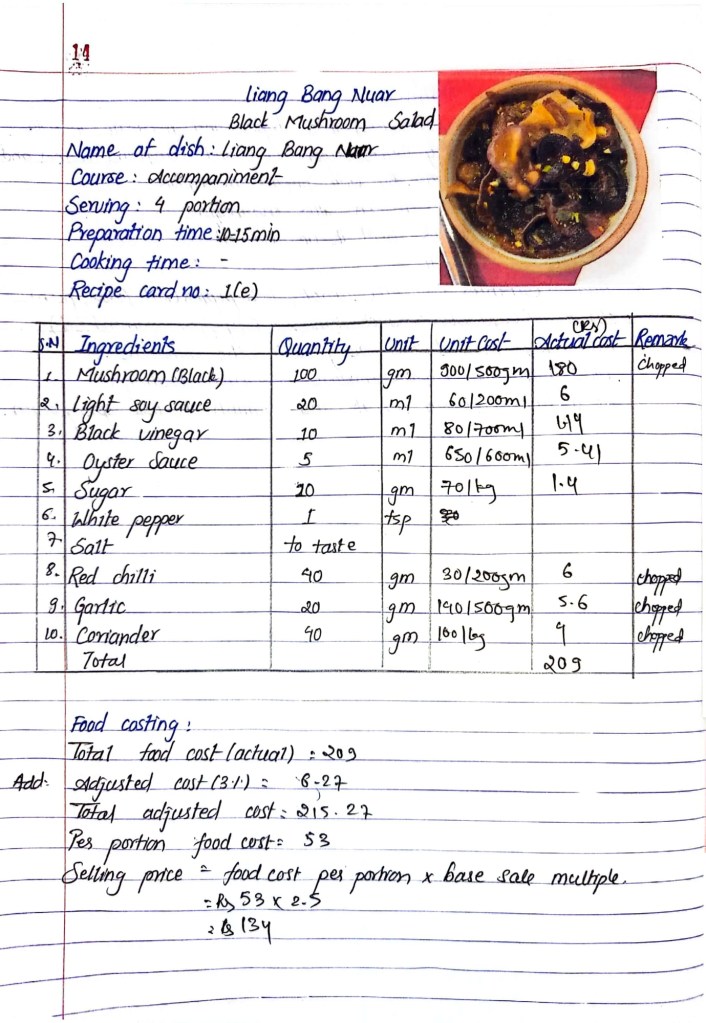 14
Liang Bang Nuar
Black Mushroom Salad
Name of dish: Liang Bang Nuar
Course: Accompaniment
Serving: 4 portion
Preparation time: 10-15min
Cooking time: -
Recipe card no: 1(e)
S.N Ingredients Quantity Unit Unit Cost Actual cost (RS) Remark
1. Mushroom (Black) 100 gm 900/500gm 180 chopped
2. Light soy sauce 20 ml 60/200ml 6
3. Black vinegar 10 ml 80/700ml 1.14
4. Oyster Sauce 5 ml 650/600ml 5.41
5. Sugar 20 gm 70/kg 1.4
6. White pepper 1 tsp
7. Salt to taste
8. Red chilli 40 gm 30/200gm 6 chopped
9. Garlic 20 gm 140/500gm 5.6 chopped
10. Coriander 40 gm 100/kg 4 chopped
Total 209
Food costing:
Total food cost (actual) = 209
Add: Adjusted cost (3%) = 6.27
Total adjusted cost = 215.27
Per portion food cost = 53
Selling price = food cost per portion x base sale multiple.
= Rs 53 x 2.5
= Rs 134